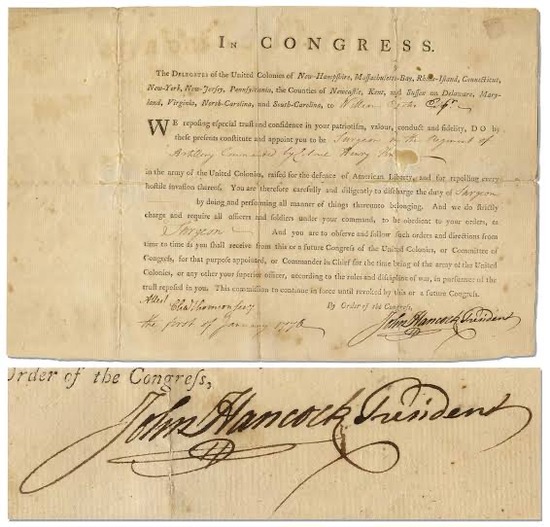 IN CONGRESS.
The DELEGATES of the United Colonies of New-Hampshire, Massachusetts-Bay, Rhode-Island, Connecticut,
New-York, New-Jersey, Pennsylvania, the Counties of Newcastle, Kent, and Sussex on Delaware, Mary-
land, Virginia, North-Carolina, and South-Carolina, to William Esqr.
WE reposing especial trust and confidence in your patriotism, valour, conduct and fidelity, DO by
these presents constitute and appoint you to be Surgeon in the Regiment of
Artillery Commanded by Colonel Henry
in the army of the United Colonies, raised for the defence of American Liberty, and for repelling every
hostile invasion thereof. You are therefore carefully and diligently to discharge the duty of Surgeon
by doing and performing all manner of things thereunto belonging. And we do strictly
charge and require all officers and soldiers under your command, to be obedient to your orders, as
Surgeon And you are to observe and follow such orders and directions from
time to time as you shall receive from this or a future Congress of the United Colonies, or Committee of
Congress, for that purpose appointed, or Commander in Chief for the time being of the army of the United
Colonies, or any other your superior officer, according to the rules and discipline of war, in pursuance of the
trust reposed in you. This commission to continue in force until revoked by this or a future Congress.
By Order of the Congress,
Attest Chas Thomson Secy
the first of January 1776
John Hancock President
Order of the Congress,
John Hancock President